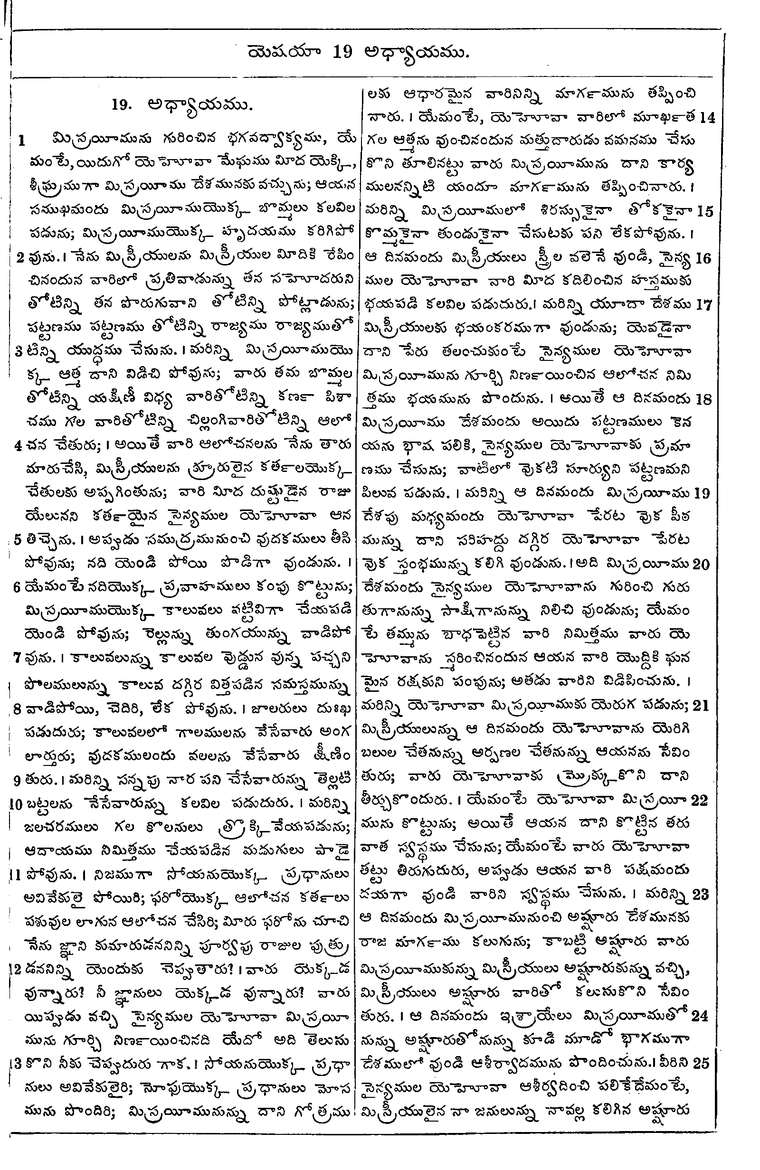 యెషయా 19 అధ్యాయము.
19. అధ్యాయము.
1 మిస్రయీమును గురించిన భగవద్వాక్యము, యే
మంటే, యిదుగో యెహోవా మేఘము మీద యెక్కి,
శీఘ్రముగా మిస్రయీము దేశమునకు వచ్చును; ఆయన
సముఖమందు మిస్రయీముయొక్క బొమ్మలు కలవిల
పడును; మిస్రయీముయొక్క హృదయము కరిగిపో
2 వును. । నేను మిస్రీయులను మిస్రీయుల మీదికి రేపిం
చినందున వారిలో ప్రతివాడున్ను తన సహోదరుని
తోటిన్ని తన పొరుగువాని తోటిన్ని పోట్లాడును;
పట్టణము పట్టణము తోటిన్ని రాజ్యము రాజ్యముతో
3 టిన్ని యుద్ధము చేసును. । మరిన్ని మిస్రయీముయొ
క్క ఆత్మ దాని విడిచి పోవును; వారు తమ బొమ్మల
తోటిన్ని యక్షిణీ విధ్య వారితోటిన్ని కర్ణ పిశా
చము గల వారితోటిన్ని చిల్లంగివారితోటిన్ని ఆలో
4 చన చేతురు; । అయితే వారి ఆలోచనలను నేను తారు
మారుచేసి, మిస్రీయులను క్రూరులైన కర్తలయొక్క
చేతులకు అప్పగింతును; వారి మీద దుష్టుడైన రాజు
యేలునని కర్తయైన సైన్యముల యెహోవా ఆన
5 తిచ్చెను. । అప్పుడు సముద్రమునుంచి వుదకములు తీసి
పోవును; నది యెండి పోయి పొడిగా వుండును. ।
6 యేమంటే నదియొక్క ప్రవాహములు కంపు కొట్టును;
మిస్రయీముయొక్క కాలువలు వట్టివిగా చేయపడి
యెండి పోవును; రెల్లున్ను తుంగయున్ను వాడిపో
7 వును. । కాలువలున్ను కాలువల వొడ్డున వున్న పచ్చని
పొలములున్ను కాలువ దగ్గిర విత్తపడిన సమస్తమున్ను
8 వాడిపోయి, చెదిరి, లేక పోవును. । జాలరులు దుఃఖ
పడుదురు; కాలువలలో గాలములను వేసేవారు అంగ
లార్తురు; వుదకములందు వలలను వేసేవారు క్షీణిం
9 తురు. । మరిన్ని సన్నపు నార పని చేసేవారున్ను తెల్లటి
10 బట్టలను నేసేవారున్ను కలవిల పడుదురు. । మరిన్ని
జలచరములు గల కొలనులు త్రొక్కివేయపడును;
ఆదాయము నిమిత్తము చేయపడిన మడుగులు పాడై
11 పోవును. । నిజముగా సోయనుయొక్క ప్రధానులు
అవివేకులై పోయిరి; ఫరోయొక్క ఆలోచన కర్తలు
పశువుల లాగున ఆలోచన చేసిరి; మీరు ఫరోను చూచి
నేను జ్ఞాని కుమారుడననిన్ని పూర్వపు రాజుల పుత్రు
12 డననిన్ని యెందుకు చెప్పుతారు? । వారు యెక్కడ
వున్నారు? నీ జ్ఞానులు యెక్కడ వున్నారు? వారు
యిప్పుడు వచ్చి సైన్యముల యెహోవా మిస్రయీ
మును గూర్చి నిర్ణయించినది యేదో అది తెలుసు
13 కొని నీకు చెప్పుదురు గాక. । సోయనుయొక్క ప్రధా
నులు అవివేకులైరి; నోఫుయొక్క ప్రధానులు మోస
మును పొందిరి; మిస్రయీమునున్ను దాని గోత్రము
లకు ఆధారమైన వారినిన్ని మార్గమును తప్పించి
నారు. । యేమంటే, యెహోవా వారిలో మూర్ఖత 14
గల ఆత్మను వుంచినందున మత్తుదారుడు వమనము చేసు
కొని తూలినట్టు వారు మిస్రయీమును దాని కార్య
ములనన్నిటి యందూ మార్గమును తప్పించినారు. ।
మరిన్ని మిస్రయీములో శిరస్సుకైనా తోకకైనా 15
కొమ్మకైనా తుండుకైనా చేసుటకు పని లేకపోవును. ।
ఆ దినమందు మిస్రీయులు స్త్రీల వలెనే వుండి, సైన్య 16
ముల యెహోవా వారి మీద కదిలించిన హస్తముకు
భయపడి కలవిల పడుదురు. । మరిన్ని యూదా దేశము 17
మిస్రీయులకు భయంకరముగా వుండును; యెవడైనా
దాని పేరు తలంచుకుంటే సైన్యముల యెహోవా
మిస్రయీమును గూర్చి నిర్ణయించిన ఆలోచన నిమి
త్తము భయమును పొందును. । అయితే ఆ దినమందు 18
మిస్రయీము దేశమందు అయిదు పట్టణములు కెన
యను భాష పలికి, సైన్యముల యెహోవాకు ప్రమా
ణము చేసును; వాటిలో వొకటి సూర్యుని పట్టణమని
పిలువ పడును. । మరిన్ని ఆ దినమందు మిస్రయీము 19
దేశపు మధ్యమందు యెహోవా పేరట వొక పీఠ
మున్ను దాని సరిహద్దు దగ్గిర యెహోవా పేరట
వొక స్తంభమున్ను కలిగి వుండును. । అది మిస్రయీము 20
దేశమందు సైన్యముల యెహోవాను గురించి గురు
తుగానున్ను సాక్షిగానున్ను నిలిచి వుండును; యేమం
టే తమ్మును బాధపెట్టిన వారి నిమిత్తము వారు యె
హోవాను స్మరించినందున ఆయన వారి యొద్దికి ఘన
మైన రక్షకుని పంపును; అతడు వారిని విడిపించును. ।
మరిన్ని యెహోవా మిస్రయీముకు యెరుగ పడును; 21
మిస్రీయులున్ను ఆ దినమందు యెహోవాను యెరిగి
బలుల చేతనున్ను అర్పణల చేతనున్ను ఆయనను సేవిం
తురు; వారు యెహోవాకు మ్రొక్కుకొని దాని
తీర్చుకొందురు. । యేమంటే యెహోవా మిస్రయీ 22
మును కొట్టును; అయితే ఆయన దాని కొట్టిన తరు
వాత స్వస్థము చేసును; యేమంటే వారు యెహోవా
తట్టు తిరుగుదురు, అప్పుడు ఆయన వారి పక్షమందు
దయగా వుండి వారిని స్వస్థము చేసును. । మరిన్ని 23
ఆ దినమందు మిస్రయీమునుంచి అష్షూరు దేశమునకు
రాజ మార్గము కలుగును; కాబట్టి అష్షూరు వారు
మిస్రయీముకున్ను మిస్రీయులు అష్షూరుకున్ను వచ్చి,
మిస్రీయులు అష్షూరు వారితో కలుసుకొని సేవిం
తురు. । ఆ దినమందు ఇశ్రాయేలు మిస్రయీముతో 24
నున్ను అష్షూరుతోనున్ను కూడి మూడో భాగముగా
దేశములో వుండి ఆశీర్వాదమును పొందించును. । వీరిని 25
సైన్యముల యెహోవా ఆశీర్వదించి పలికేదేమంటే,
మిస్రీయులైన నా జనులున్ను నావల్ల కలిగిన అష్షూరు